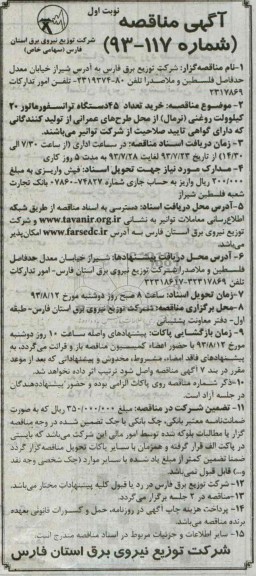 نوبت اول
آگهی مناقصه
(شماره ۱۱۷-۹۳)
شرکت توزیع نیروی برق استان
فارس (سهامی خاص)
۱-نام مناقصه‌گزار: شرکت توزیع برق فارس به آدرس شیراز خیابان معدل
حدفاصل فلسطین و ملاصدرا تلفن ۸۰-۲۳۱۹۳۷۴- تلفن امور تدارکات
۲۳۱۷۸۶۹
۲- موضوع مناقصه: خرید تعداد ۴۵دستگاه ترانسفورماتور ۲۰
کیلوولت روغنی (نرمال) از محل طرح‌های عمرانی از تولید کنندگانی
که دارای گواهی تایید صلاحیت از شرکت توانیر می‌باشند.
۳- زمان دریافت اسناد مناقصه: در ساعات اداری (از ساعت ۷/۳۰ الی
۱۴/۳۰) از تاریخ ۹۳/۷/۲۳ لغایت ۹۳/۷/۲۸ به مدت ۵ روز کاری
۴- مدارک مورد نیاز جهت تحویل اسناد: فیش واریزی به مبلغ
۲۰۰/۰۰۰ ریال واریز به حساب جاری شماره ۰۷۸۶۰۰۷۴۸۲۷ بانک تجارت
شعبه فلسطین شیراز
۵- آدرس محل دریافت اسناد: دسترسی به اسناد مناقصه از طریق شبکه
اطلاع‌رسانی معاملات توانیر به نشانی www.tavanir.org.ir و شرکت
توزیع نیروی برق استان فارس به آدرس www.farsedc.ir امکان‌پذیر
می‌باشد.
۶- آدرس محل دریافت پیشنهادها: شیراز خیابان معدل حدفاصل
فلسطین و ملاصدرا شرکت توزیع نیروی برق استان فارس- امور تدارکات
تلفن ۳۲۳۱۷۸۶۹-۳۲۳۱۸۶۴۷
۷- زمان تحویل اسناد: ساعت ۸ صبح روز دوشنبه مورخ ۹۳/۸/۱۲
۸- محل برگزاری مناقصه: شرکت توزیع نیروی برق استان فارس- طبقه
اول- دفتر معاونت پشتیبانی
۹- زمان بازگشایی پاکات: پیشنهادهای واصله ساعت ۱۰ روز دوشنبه
مورخ ۹۳/۸/۱۲ با حضور اعضاء کمیسیون مناقصه باز و قرائت می‌گردد، به
پیشنهادهای فاقد امضاء، مشروط، مخدوش و پیشنهاداتی که بعد از موعد
مقرر در بند ۷ آگهی مناقصه واصل شود ترتیب اثر داده نخواهد شد.
۱۰-ذکر شماره مناقصه روی پاکات الزامی بوده و حضور پیشنهاددهندگان
در جلسه آزاد است.
۱۱- تضمین شرکت در مناقصه: مبلغ ۳۵۰/۰۰۰/۰۰۰ ریال که به صورت
ضمانت‌نامه معتبر بانکی، چک بانکی یا چک تضمین شده در وجه مناقصه
گزار یا مطالبات بلوکه شده توسط امور مالی این شرکت می‌باشد که بایستی
در پاکت الف قرار گرفته و همزمان با سایر پاکات تحویل مناقصه‌گزار گردد
ضمنا تضمین کمتر از مبلغ یاد شده یا سایر موارد (چک شخصی وجه نقد
و...) قابل قبول نمی‌باشد.
۱۲- شرکت توزیع فارس در رد یا قبول کلیه پیشنهادات مختار می‌باشد.
۱۳-مناقصه در ۲ جلسه برگزار می‌گردد.
۱۴- پرداخت هزینه چاپ آگهی در روزنامه، حمل و کسورات قانونی بعهده
برنده مناقصه می‌باشد.
۱۵- سایر اطلاعات و جزئیات مربوط در اسناد مناقصه مندرج است.
شرکت توزیع نیروی برق استان فارس